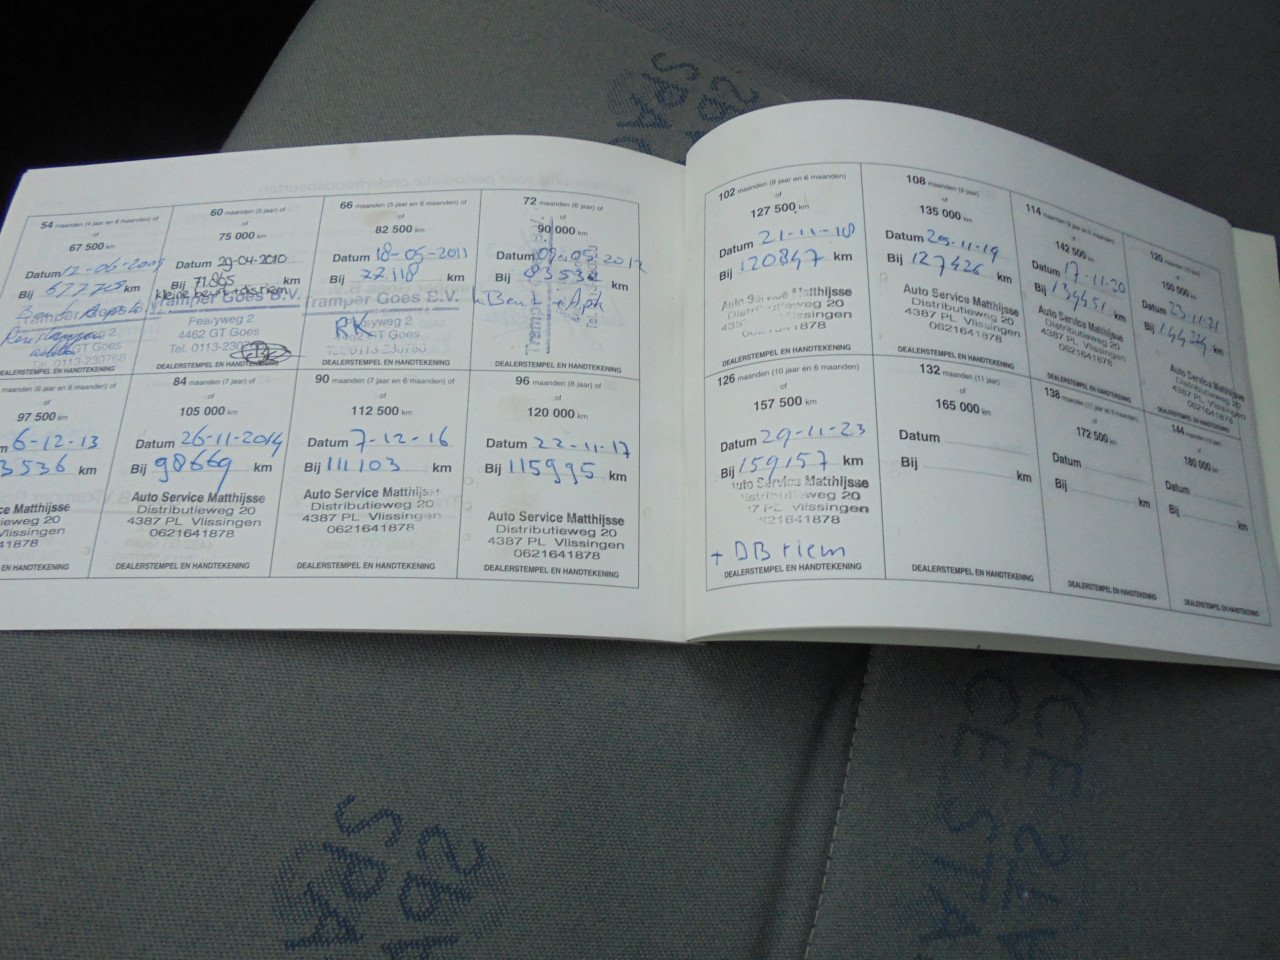 54 maanden (4 jaar en 6 maanden) of
of
67 500 km
Datum 12-06-2009
Bij 67770 km
Pearyweg 2
GT Goes
Tel. 0113-230768
DEALERSTEMPEL EN HANDTEKENING
60 maanden (5 jaar) of
of
75 000 km
Datum 29-04-2010
Bij 71.865 km
kleine beurt + dis riem
Tramper Goes B.V.
Pearyweg 2
4462 GT Goes
Tel. 0113-230
DEALERSTEMPEL EN HANDTEKENING
66 maanden (5 jaar en 6 maanden) of
of
82 500 km
Datum 18-05-2011
Bij 77.118 km
Tramper Goes B.V.
RK
Pearyweg 2
4462 GT Goes
Tel. 0113-230768
DEALERSTEMPEL EN HANDTEKENING
72 maanden (6 jaar) of
of
90 000 km
Datum 09-05-2012
Bij 83532 km
Beurt + Apk
DEALERSTEMPEL EN HANDTEKENING
maanden (6 jaar en 6 maanden) of
of
97 500 km
6-12-13
3536 km
ce Matthijsse
eweg 20
Vlissingen
41878
DEALERSTEMPEL EN HANDTEKENING
84 maanden (7 jaar) of
of
105 000 km
Datum 26-11-2014
Bij 98669 km
Auto Service Matthijsse
Distributieweg 20
4387 PL Vlissingen
0621641878
DEALERSTEMPEL EN HANDTEKENING
90 maanden (7 jaar en 6 maanden) of
of
112 500 km
Datum 7-12-16
Bij 111103 km
Auto Service Matthijsse
Distributieweg 20
4387 PL Vlissingen
0621641878
DEALERSTEMPEL EN HANDTEKENING
96 maanden (8 jaar) of
of
120 000 km
Datum 22-11-17
Bij 115995 km
Auto Service Matthijsse
Distributieweg 20
4387 PL Vlissingen
0621641878
DEALERSTEMPEL EN HANDTEKENING
102 maanden (8 jaar en 6 maanden)
of
127 500 km
Datum 21-11-18
Bij 120847 km
Auto Service Matthijsse
Distributieweg 20
Vlissingen
0621641878
DEALERSTEMPEL EN HANDTEKENING
108 maanden (9 jaar)
of
135 000 km
Datum 25-11-19
Bij 127426 km
Auto Service Matthijsse
Distributieweg 20
4387 PL Vlissingen
0621641878
DEALERSTEMPEL EN HANDTEKENING
114 maanden (9 jaar en 6 maanden)
of
142 500 km
Datum 17-11-20
Bij 134451 km
Auto Service Matthijsse
Distributieweg 20
4387 PL Vlissingen
0621641878
DEALERSTEMPEL EN HANDTEKENING
120 maanden (10 jaar)
of
150 000 km
Datum 23-11-21
Bij km
Auto Service Matthijsse
Distributieweg 20
4387 PL Vlissingen
0621641878
DEALERSTEMPEL EN HANDTEKENING
126 maanden (10 jaar en 6 maanden)
of
157 500 km
Datum 29-11-23
Bij 159157 km
Auto Service Matthijsse
Distributieweg 20
PL Vlissingen
0621641878
+ DB riem
DEALERSTEMPEL EN HANDTEKENING
132 maanden (11 jaar)
of
165 000 km
Datum
Bij km
DEALERSTEMPEL EN HANDTEKENING
138 maanden (11 jaar en 6 maanden)
of
172 500 km
Datum
Bij km
DEALERSTEMPEL EN HANDTEKENING
144 maanden (12 jaar)
of
180 000 km
Datum
Bij km
DEALERSTEMPEL EN HANDTEKENING